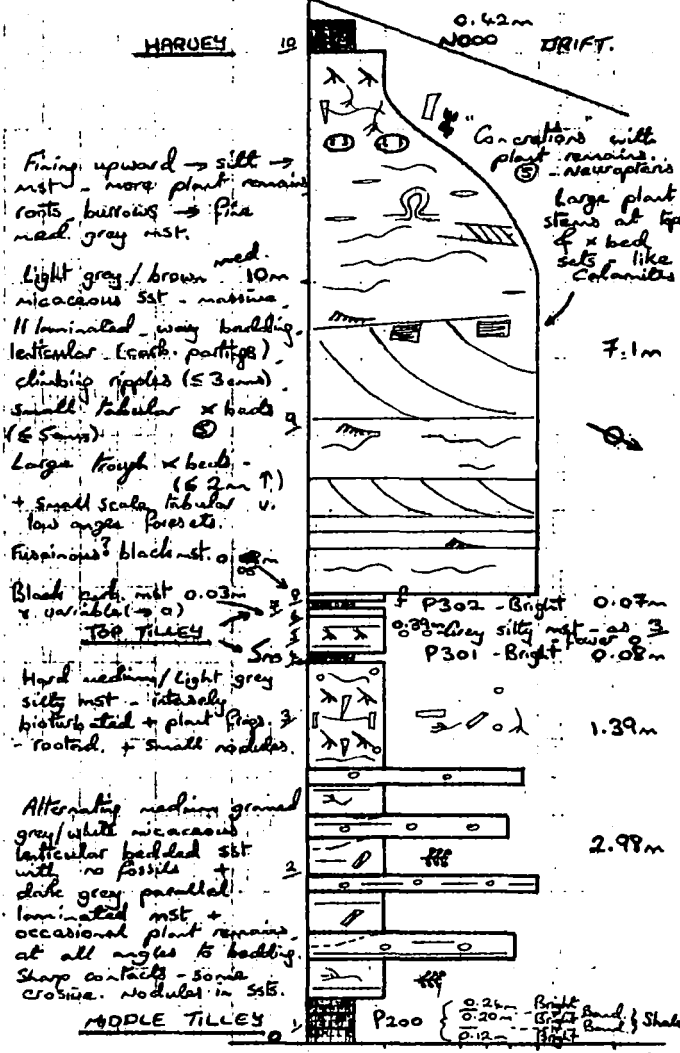 0.42m
HARVEY 10 N000 DRIFT.
"Concretions" with
plant remains.
⑤ - Neuropteris
Large plant
stems at top
of x bed
sets - like
Calamites
Fining upward → silt →
mst - more plant remains
roots burrows → fine
med. grey mst.
med.
Light grey/brown 10m
micaceous sst - massive,
// laminated - wavy bedding,
lenticular (carb. partings)
climbing ripples (≤ 3cms)
small tabular x beds 9
(≤ 5cms) ⑤
Large trough x beds -
(≤ 2m ↑)
+ small scale tabular
low angle foresets.
7.1m
Fusinous? black mst.
Black carb. mst 0.03m
& variable (→ 0)
TOP TILLEY
8
7
P302 - Bright 0.07m
0.39m Grey silty mst - as 3
lower
P301 - Bright 0.08m
Hard medium/light grey
silty mst - intensely
bioturbated + plant frags. 3
- rooted. + small nodules.
1.39m
Alternating medium grained
grey/white micaceous
lenticular bedded sst
with no fossils + 2
dark grey parallel
laminated mst +
occasional plant remains
at all angles to bedding.
Sharp contacts - some
erosive. Nodules in ssts.
2.98m
MIDDLE TILLEY 1
0
P200
0.26m Bright
0.20m Bright Band } Shale
0.12m Bright Band